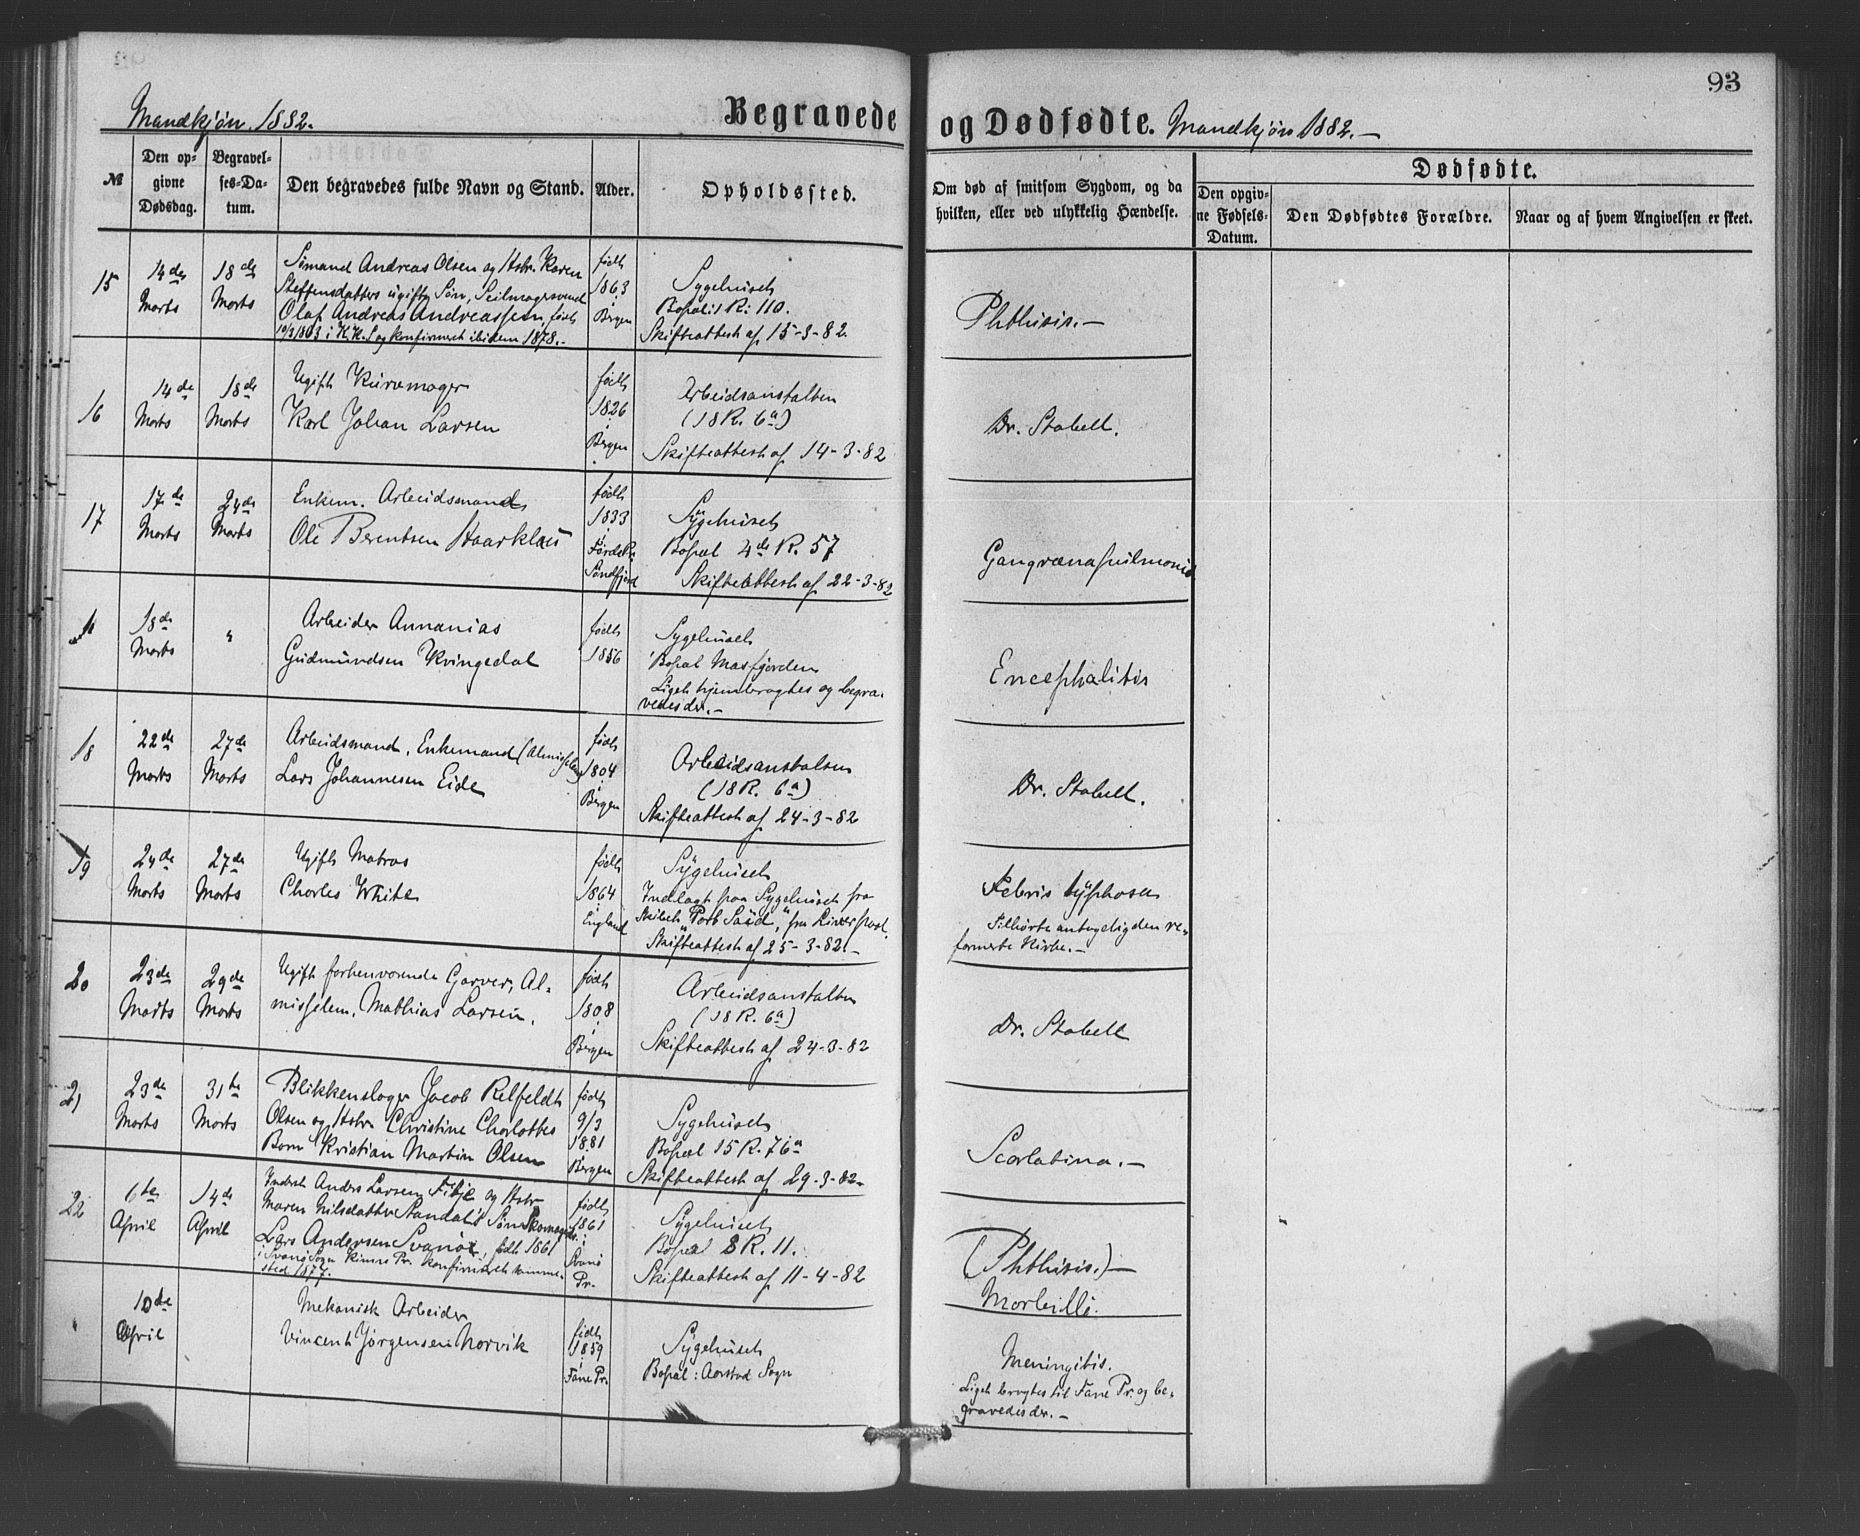 93
Mandkjøn 1882.
Begravede
og Dødfødte. Mandkjøn 1882.-
№
Den opgivne Dødsdag.
Begravelses-Datum.
Den begravedes fulde Navn og Stand.
Alder.
Opholdssted.
Om død af smitsom Sygdom, og da
hvilken, eller ved ulykkelig Hændelse.
Dødfødte.
Den opgivne Fødsels-Datum.
Den Dødfødtes Forældre.
Naar og af hvem Angivelsen er skeet.
15
14de Marts
18de Marts
Sømand Andreas Olsen og Hstr. Karen
Steffensdatters ugifte Søn, Seilmagersvend
Olaf Andreas Andreassen, født
10/3 1863 i K.K.S og konfirmeret ibidem 1878.-
født 1863 i Bergen
Sygehuset
Bopæl: 1 R: 110.
Skifteattest af 15-3-82.
Phthisis.-
16
14de Marts
18de Marts
Ugift Kurvmager
Karl Johan Larsen
født 1826 i Bergen
Arbeidsanstalten
(18 R. 6a)
Skifteattest af 14-3-82
Dr. Stabell.
17
17de Marts
24de Marts
Enkem. Arbeidsmand
Ole Berentsen Haarklau
født 1833 i Førde Pr. Søndfjord
Sygehuset
Bopæl 4de R. 57
Skifteattest af 22-3-82
Gangræna pulmonis
"
18de Marts
"
Arbeider Annanias
Gudmundsen Kvingedal
født 1856
Sygehuset
Bopæl Masfjorden
Liget hjembragtes og begra-
vedes der.-
Encephalitis
18
22de Marts
27de Marts
Arbeidsmand, Enkemand (Almisselem)
Lars Johannesen Eide
født 1804 i Bergen
Arbeidsanstalten
(18 R. 6a)
Skifteattest af 24-3-82
Dr. Stabell.
19
24de Marts
27de Marts
Ugift Matros
Charles White
født 1864 i England
Sygehuset
Indlagt paa Sygehuset fra
Skibet "Port Said", fra Liverpool.
Skifteattest af 25-3-82.-
Febris typhosa
Tilhørte antagelig den re-
formerte Kirke.-
20
23de Marts
29de Marts
Ugift forhenværende Garver, Al-
misselem, Mathias Larsen.
født 1808 i Bergen
Arbeidsanstalten
(18 R. 6a)
Skifteattest af 24-3-82
Dr. Stabell
21
23de Marts
31te Marts
Blikkenslager Jacob Relfeldt
Olsen og Hstr Christine Charlottes
Barn Kristian Martin Olsen
født 9/3 1881 i Bergen
Sygehuset
Bopæl 15 R. 76a
Skifteattest af 29-3-82.
Scarlatina.-
22
6te April
14de April
Inderst Anders Larsen Fitje og Hstr
Maren Nilsdatter Standals Søn, Skomagers.
Lars Andersen Svanøe, født 1861
i Svanø Sogn Kinns Pr. konfirmeret samme-
sted 1877.
født 1861 i Svanø Pr.
Sygehuset
Bopæl 8 R. 11.
Skifteattest af 11-4-82
(Phthisis.)-
Morbilli.
"
10de April
Mekanisk Arbeider
Vincent Jørgensen Norvik
født 1859 i Fane Pr.
Sygehuset
Bopæl: Aarstad Sogn
Meningitis.
Liget bragtes til Fane Pr. og be-
gravedes der.-